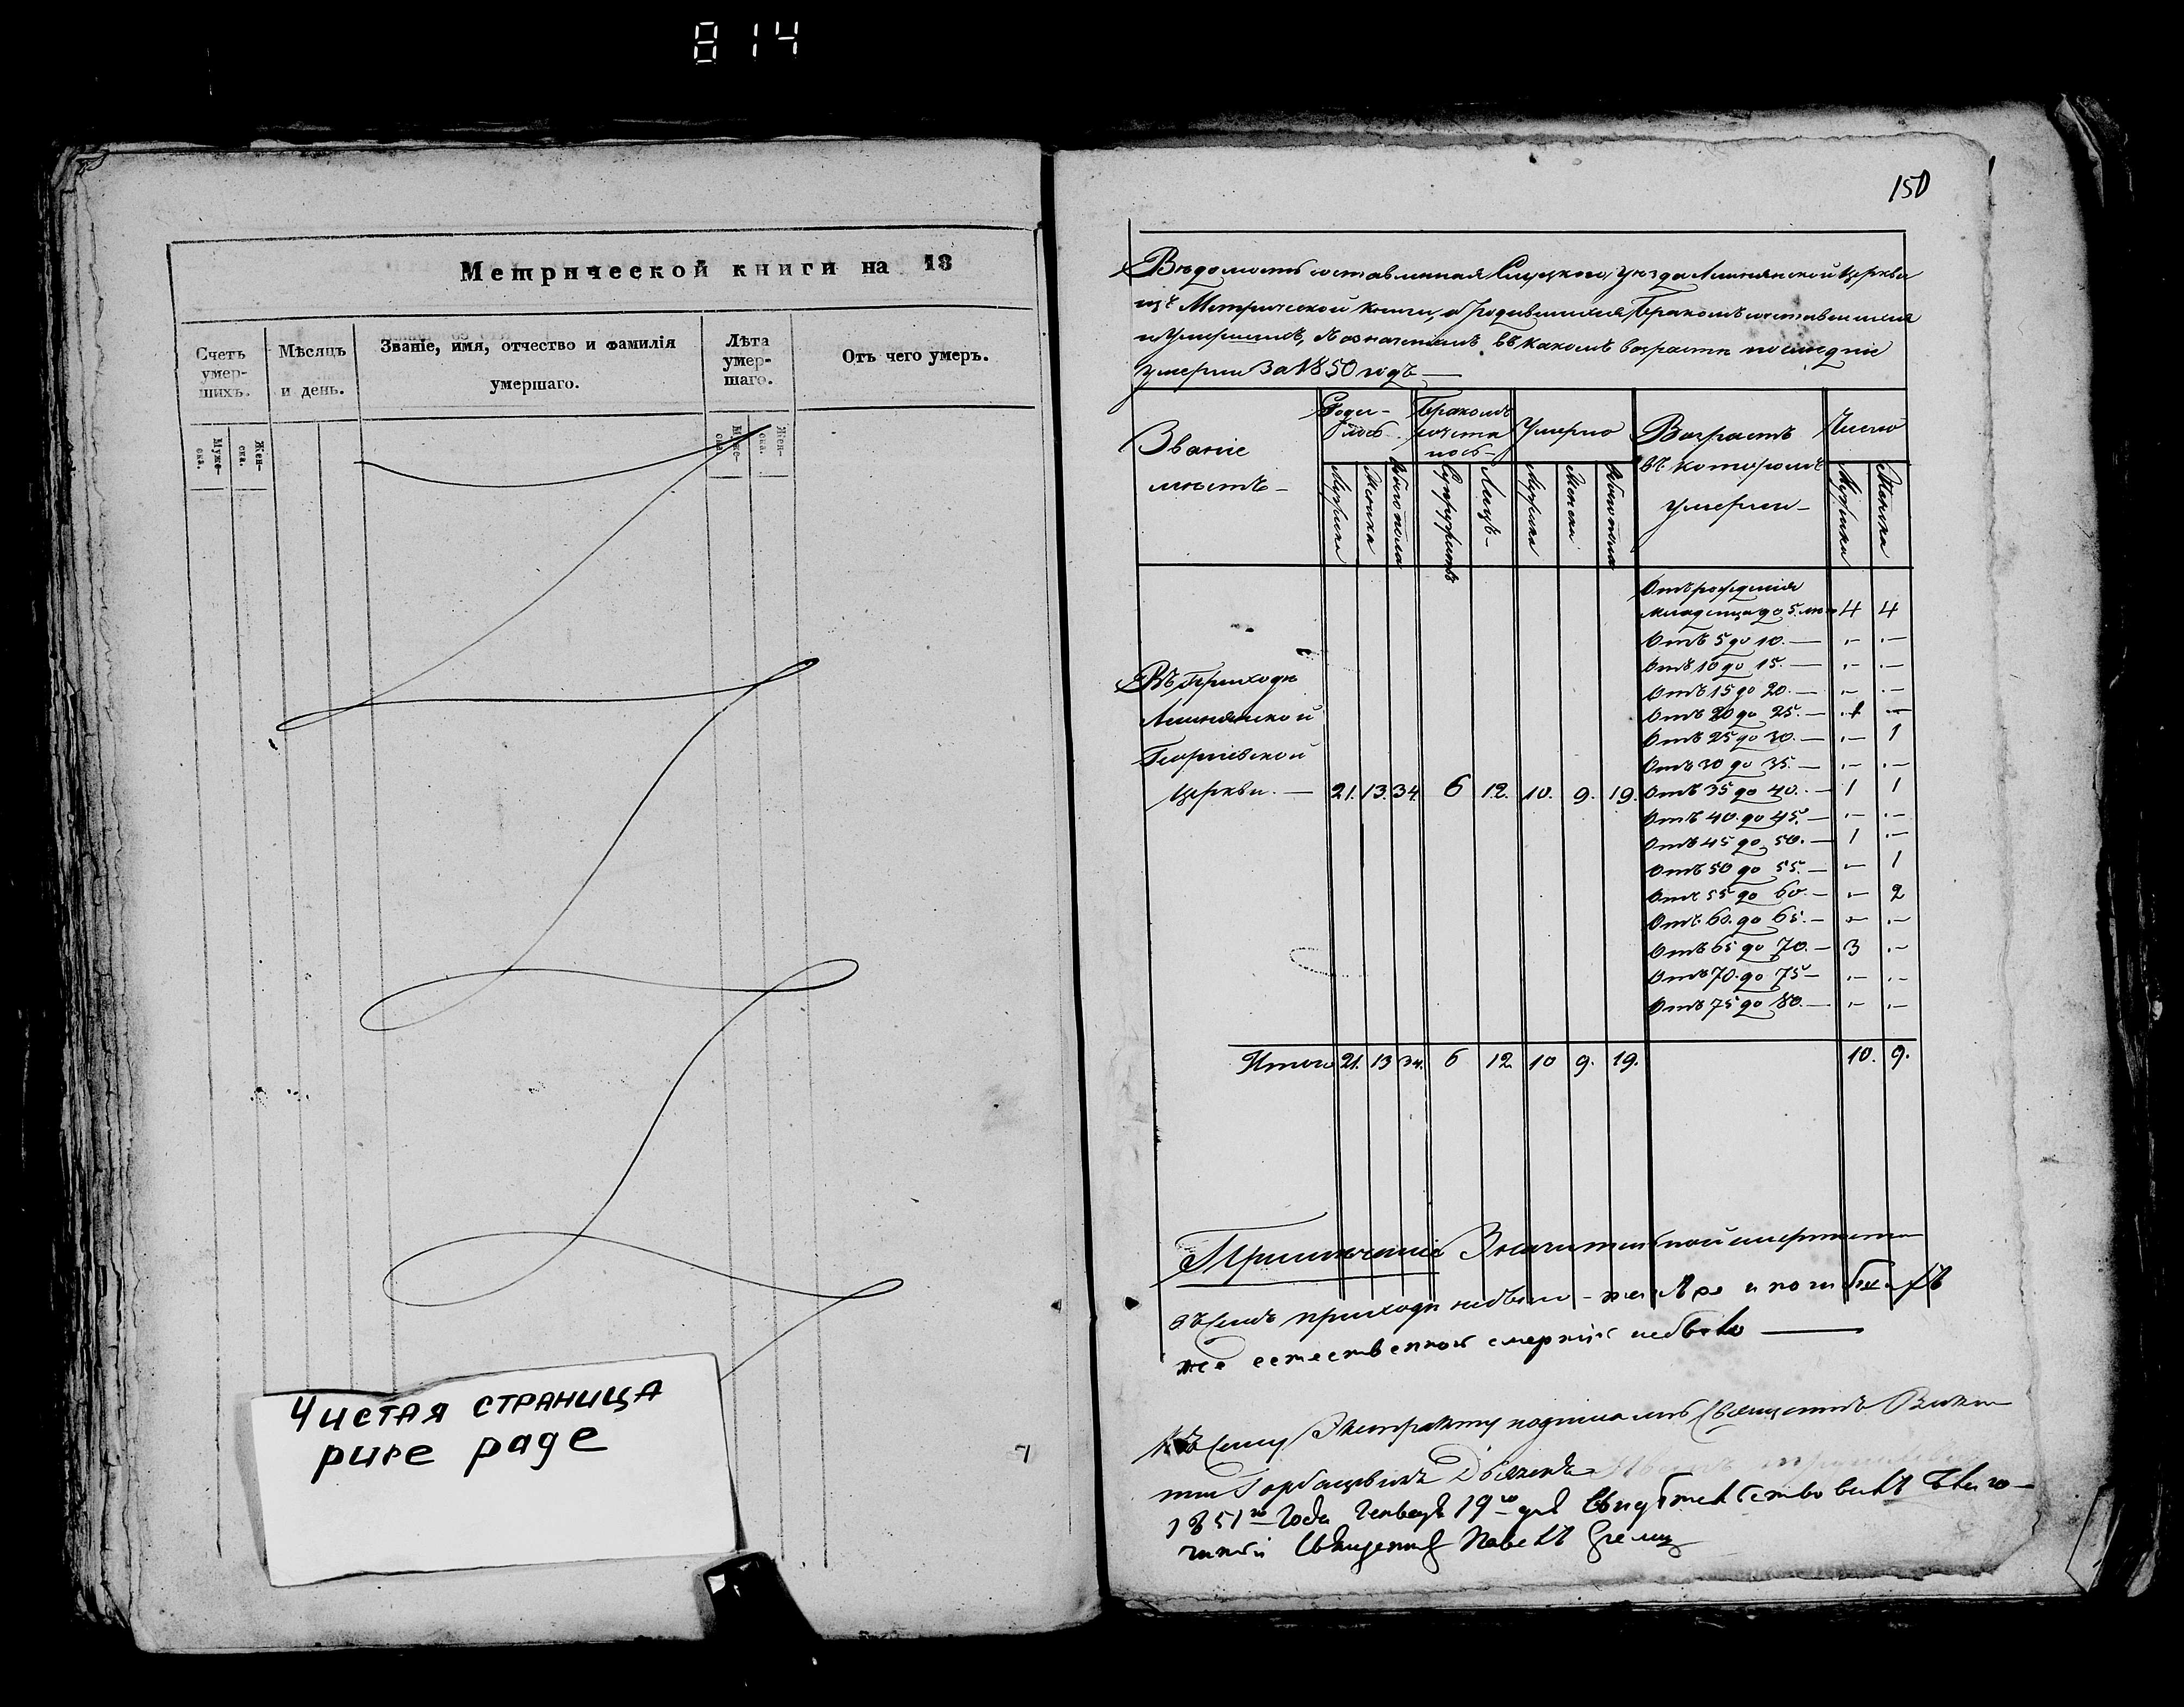 814
Метрической книги на 18
Счетъ умер-шихъ.
Мѣсяцъ и день.
Званіе, имя, отчество и фамилія умершаго.
Лѣта умер-шаго.
Отъ чего умеръ.
Муже-ска.
Жен-ска.
Муже-ска.
Жен-ска.
Чистая страница
pure page
150
Вѣдомость составленная Слуцкаго уѣзда церкви
изъ Метрической книги, о родившихся, бракомъ сочетавшихся
и умершихъ, въ какомъ возрастѣ послѣдніе
умерли За 1850 годъ —
Званіе мѣстъ —
Роди-лось
Бракомъ сочета-лось —
Умерло
Возрастъ въ которомъ умерли —
Число
Мужска
Женска
Обоего пола
Супружествъ
Лицъ —
Мужска
Женска
Обоего пола
Мужска
Женска
Отъ рожденія
младенца до 5 4 4
Отъ 5 до 10. — .— .—
Отъ 10 до 15. — .— .—
Отъ 15 до 20. — .— .—
Отъ 20 до 25. — .1 .—
Отъ 25 до 30. — .— 1
Отъ 30 до 35. — .— .—
Въ приходѣ
Георгіевской
церкви. — 21. 13. 34. 6 12. 10. 9. 19. Отъ 35 до 40. — 1 1
Отъ 40 до 45. — .— .—
Отъ 45 до 50. — 1 .—
Отъ 50 до 55. — .— 1
Отъ 55 до 60. — .— 2
Отъ 60. до 65. — .— .—
Отъ 65 до 70. — 3 .—
Отъ 70. до 75 — .— .—
Отъ 75 до 80. — .— .—
Итого 21. 13 34. 6 12. 10 9. 19. 10. 9.
Примѣчаніе Значительной смертности
въ семъ приходѣ небыло
же естественной небыло —
Къ сему Экстракту подписались Священникъ
Горбацевичъ Дьячекъ
1851го Года Генваря 19го дня
Священник Павелъ